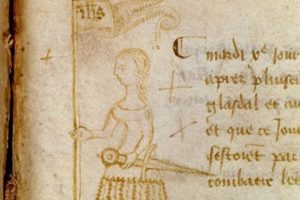 JHS
mardi xe jour
apres plusieurs
glasdal et au
et que ce jour
estoient par
combatre les